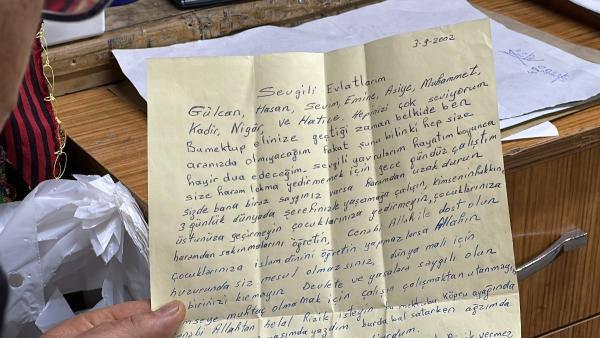 3-9-2002
Sevgili Evlatlarım
Gülcan, Hasan, Sevim, Emine, Asiye, Muhammet,
Kadir, Nigâr, ve Hatice. Hepinizi çok seviyorum
Bumektup elinize geçtiği zaman belkide ben
aranızda olmıyacağım fakat şunu bilinki hep size
hayir dua edeceğim. sevgili yavrularım hayatım boyunca
size haram lokma yedirmemek için gece gündüz çalıştım
sizde bana biraz saygınız varsa haramdan uzak durun
3 günlük dünyada şerefinizle yaşamaya çalışın, kimseninhakkını
üstünüze geçirmeyin çocuklarınıza yedirmeyin, çocuklarınıza
haramdan sakınmalarını öğretin, Cenabı Allah ile dost olun
çocuklarınıza islam dinini öğretin yapmazlarsa Allahın
huzurunda siz mesul olmazsınız, dünya malı için
birinizi kırmayın Devlete ve yasalara saygılı olun
imseye muhtaç olmamak için çalışın çalışmaktan utanmayı,
enabı Allahtan helal Rızık isteyin mektubu köprü ayağında
yazdım burda bal satarken ağzımda
Rızık vermez